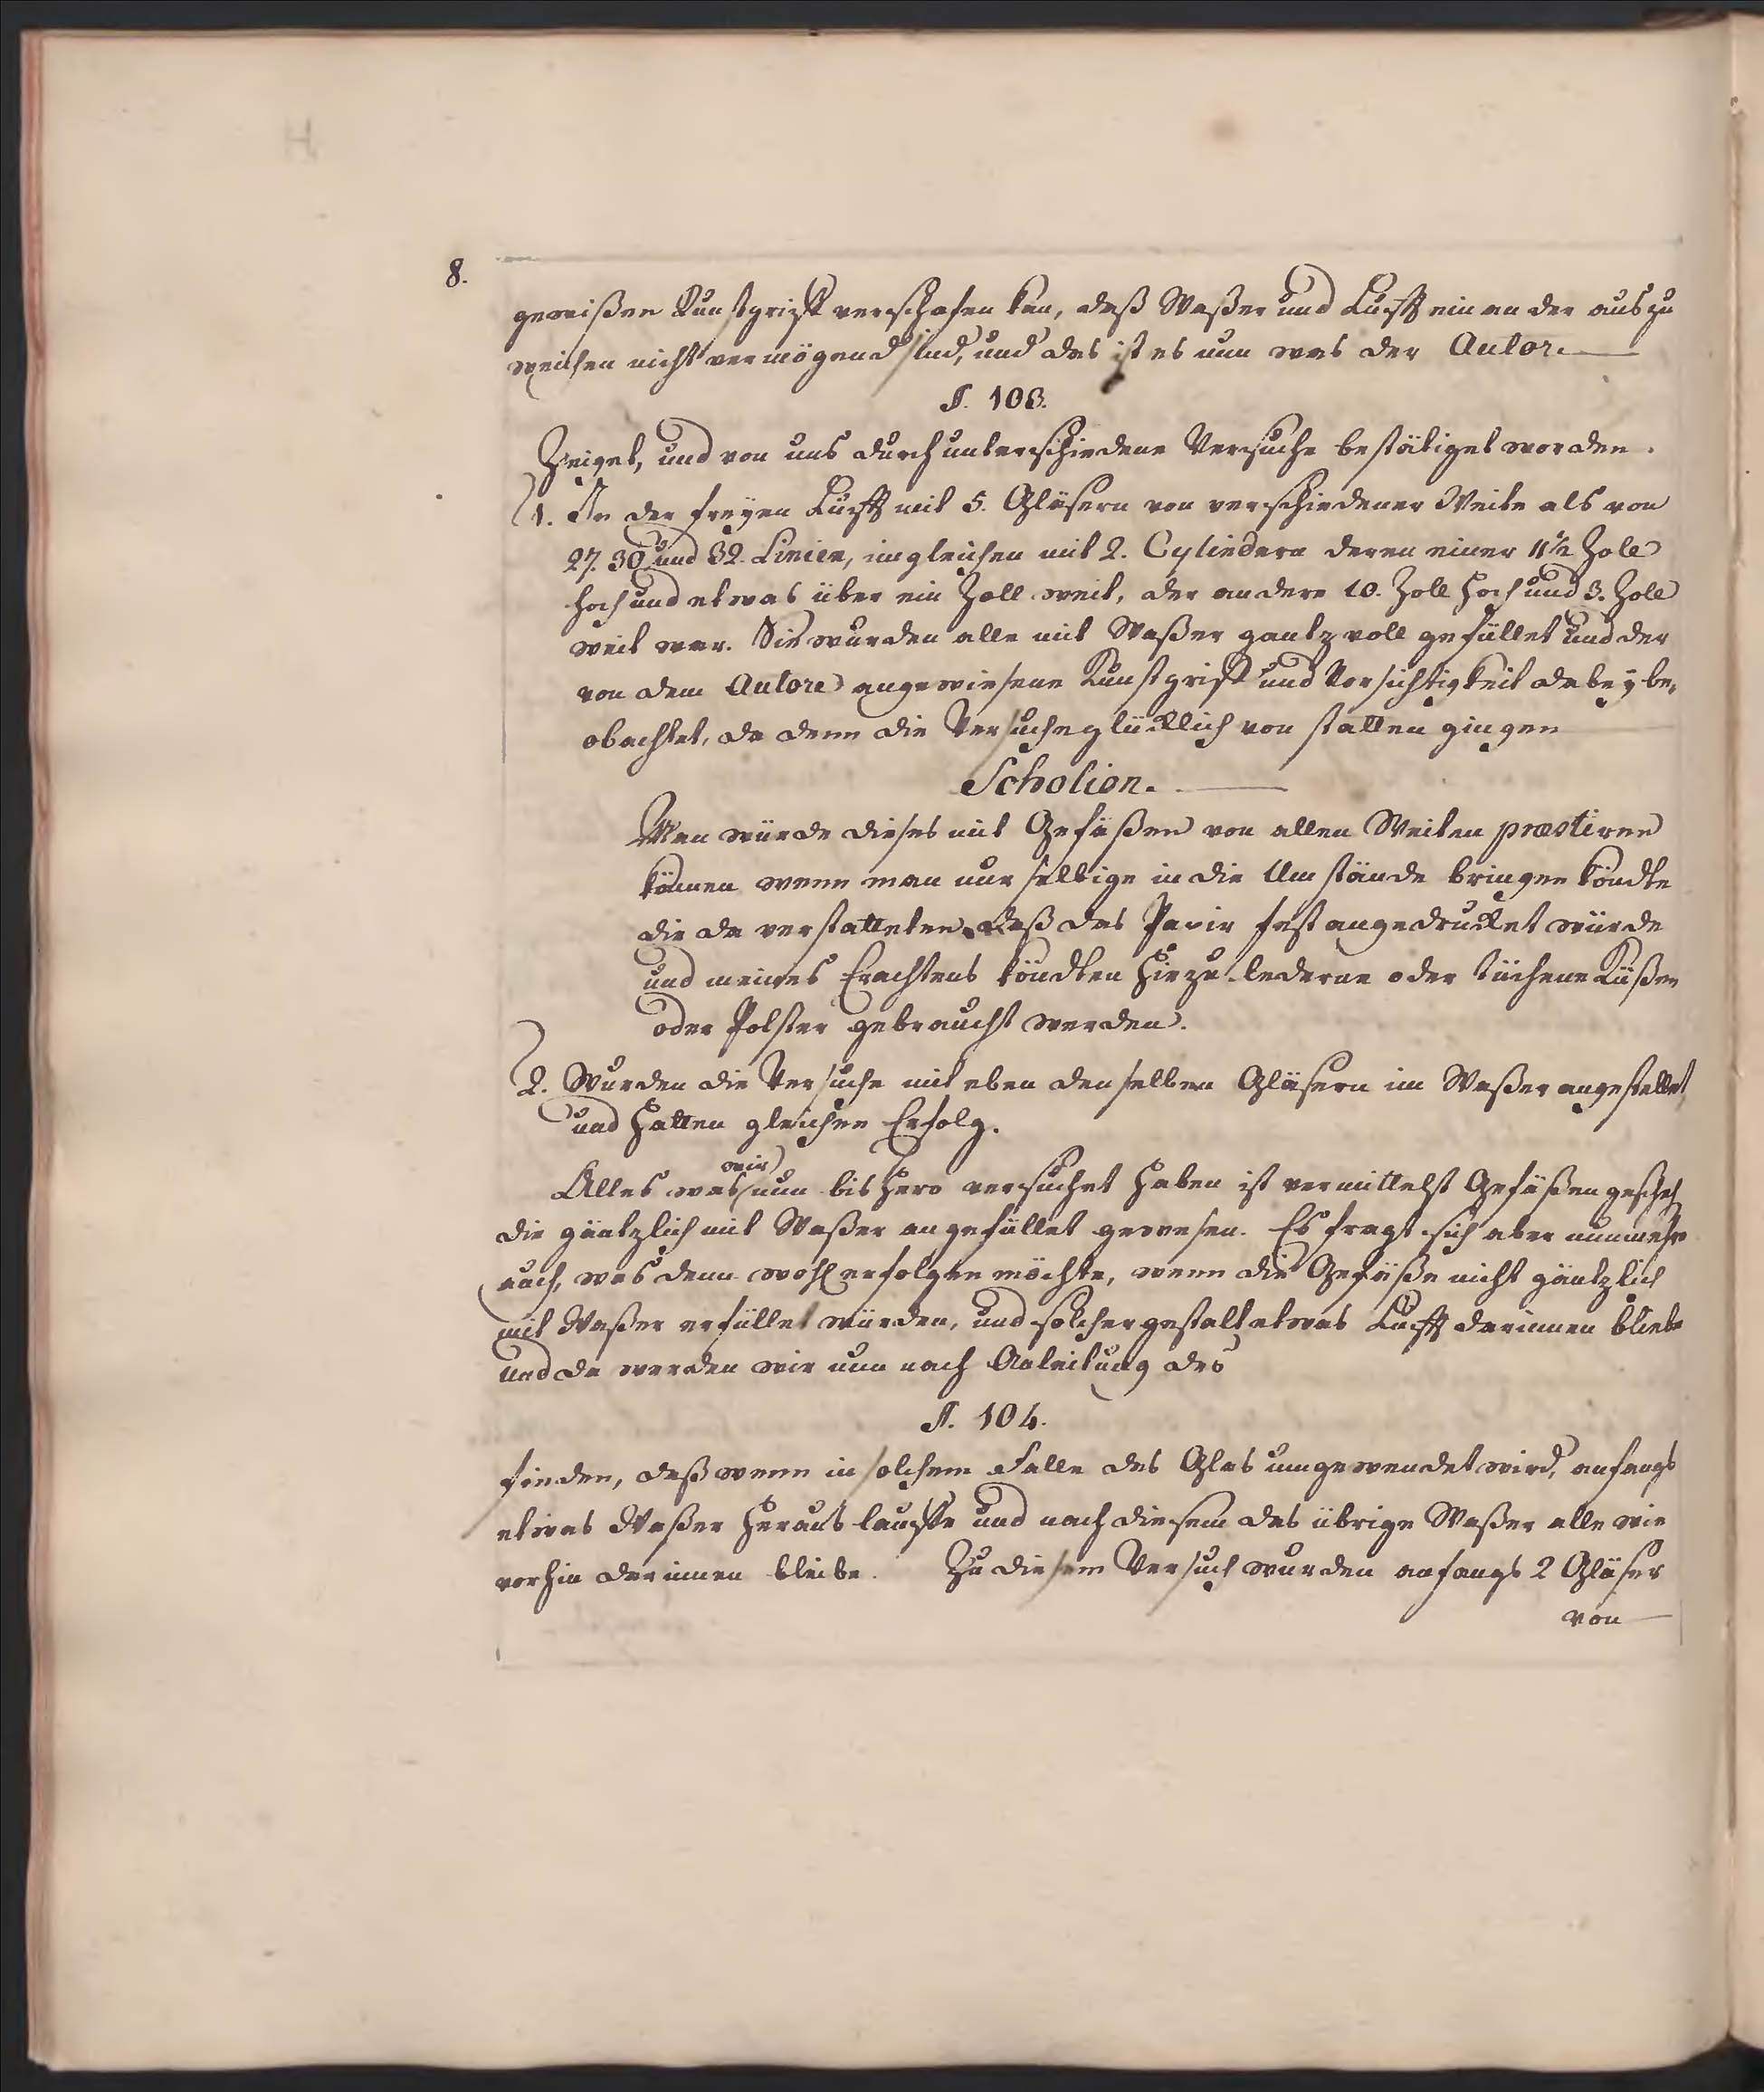 8.
gewißen Kunstgriff verschafen kan, daß Waßer und Lufft ein an der aus zu
weichen nicht vermögend sind, und das ist es nun was der Autor.
§. 103.
Zeiget, und von uns durch unterschiedene Versuche bestätiget worden.
1. In der freyen Lufft mit 5. Gläsern von verschiedener Weite als von
27. 30 und 32. Linien, imgleichen mit 2. Cyliedern deren einer 11½ Zoll
hoch und etwas über ein Zoll weit, der andere 10. Zoll hoch und 3. Zoll
weit war. Sie wurden alle mit Waßer gantz voll gefüllet und der
von dem Autore angewiesene Kunstgriff und Vorsichtigkeit dabey be,
obachtet, da denn die Versuche glücklich von statten gingen
Scholion.
Man würde dieses mit Gefäßen von allen Weiten præstiren
können wenn man nur selbige in die Umstände bringen köndte
die da verstatteten daß das Papir fest angedrucket würde
und meines Erachtens köndten hiezu lederne oder tüchene Küßen
oder Polster gebraucht werden.
2. Wurden die Versuche mit eben denselben Gläsern im Waßer angestellet
und hatten gleichen Erfolg.
Alles was wir nun bis hero versuchet haben ist vermittelst Gefäßen gescheh
die gäntzlich mit Waßer angefüllet gewesen. Es fragt sich aber nunmehr
auch, was denn wohl erfolgen möchte, wenn die Gefäße nicht gäntzlich
mit Waßer erfüllet würden, und solchergestalt etwas Lufft darinnen bliebe
und da werden wir nun nach Anleitung des
§. 104.
finden, daß wenn in solchem Falle das Glas umgewendet wird, anfangs
etwas Waßer heraus lauffe und nach diesem das übrige Waßer alle wie
vorhin darinnen bleibe. Zu diesem Versuch wurden anfangs 2 Gläser
von